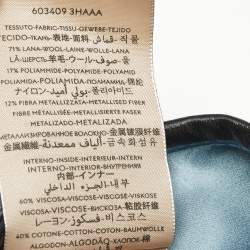 603409 3HAAA
TESSUTO-FABRIC-TISSU-GEWEBE-TEJIDO
ТКАНЬ-表地-面料-قماش-직물
71% LANA-WOOL-LAINE-WOLLE-LANA
LÃ-ШЕРСТЬ-羊毛-ウール-صوف-모
17% POLIAMMIDE-POLYAMIDE-POLYAMIDE
POLYAMID-POLIAMIDA-POLIAMIDA-ПОЛИАМИД
ナイロン-بولي أميد-폴리아미드
12% FIBRA METALLIZZATA-METALLISED FIBER
FIBRE METALLISEE-METALLISIERTE FASER
METALIZADA-METALIZADA
МЕТАЛЛИЗИРОВАННОЕ ВОЛОКНО-金属镀膜纤维
금속가공섬유-ألياف معدنية-金属繊維
INTERNO-INSIDE-INTERIEUR-INTERN
INTERIOR-INTERIOR
内部-インナー-الجزء الداخلي
내부
60% VISCOSA-VISCOSE-VISCOSE-VISKOSE
VISCOSA-VISCOSE-ВИСКОЗА-粘胶纤维
レーヨン-فسكوز-비스코스
40% COTONE-COTTON-COTON-BAUMWOLLE
ALGODON-ALGODÃO-